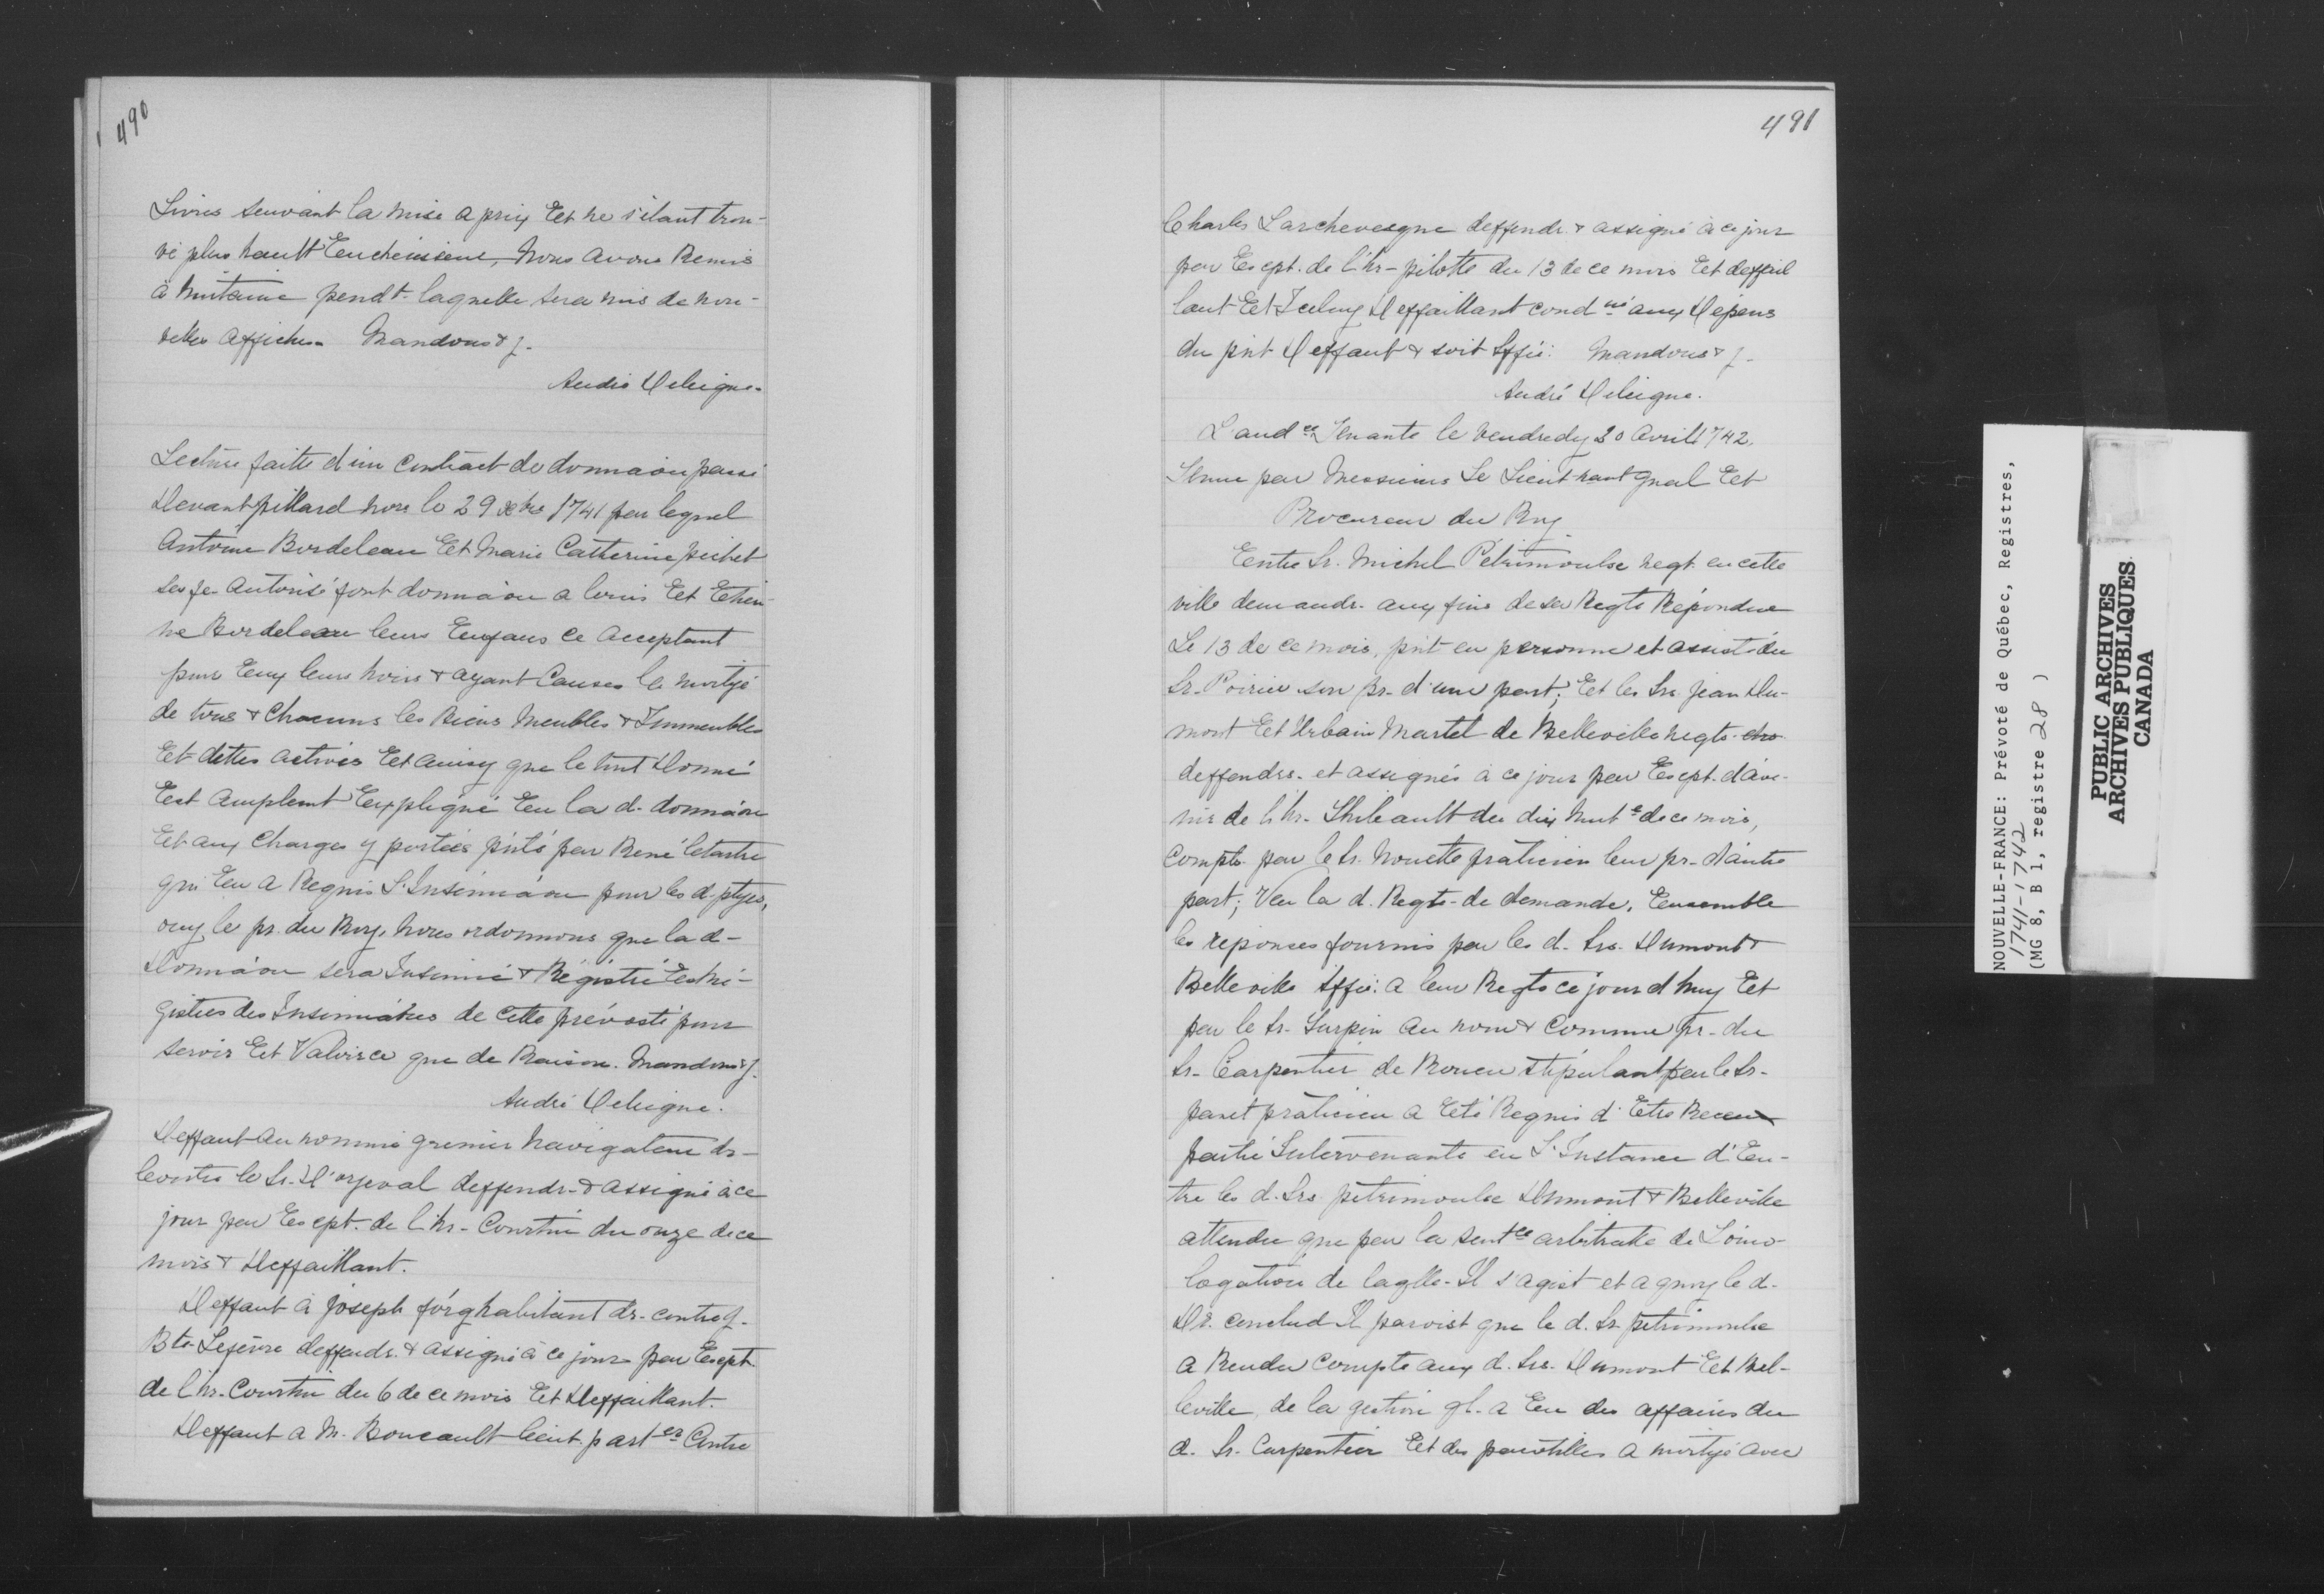 490
Livres suivant la mise a prix Et ne s'étant trou-
vé plus hault Encherisseur, Nous avons Remis
à huitaine pendt. laquelle sera mis de nou-
velles affiches. Mandons & z.
André Deleigne.
Lecture faitte d'un Contract de donnaôn passé
Devant pillard nore le 29 xbre 1741 par lequel
Antoine Bordeleau Et Marie Catherine pichet
sa fe. Autorisé font donnaôn a louis Et Etien-
ne Bordeleau leurs Enfans ce acceptant
pour Eux leurs hoirs & ayant Causes la moityé
de tous & Chacuns les Biens Meubles & Immeubles
Et dettes actives Et ainsy que le tout Donné
Est amplemt Expliqué En la d. donnaôn
Et aux Charges y portées pnté par René letartre
qui En a Requis L'Insinuaôn pour les d. ptyes,
ouy le pr. du Roy, Nous ordonnons que la d-
Donnaôn sera Insinué & Régistré Es Ré-
gistres des Insinuaôns de Cette prévosté pour
servir Et Valoir ce que de Raison. Mandons & z.
André Deleigne.
Deffaut au nommé grenier Navigateur dr-
Contre le Sr. D'orjeval deffendr. & assigné à ce
jour par Exept. de l'hr- Courtin du onze de ce
mois & Deffaillant.
Deffaut à Joseph forg habitant dr. contre J.
Bte Lefevre deffendr. & assigné à ce jour par Exept.
de l'hr. Courtin du 6 de ce mois Et Deffaillant.
Deffaut a M. Boucault lieut. parter Contre
491
Charles Larchevesque deffendr. & assigné à ce jour
par Exept. de l'hr- pilotte du 13 de ce mois Et deffail
lant Et Iceluy Deffaillant condné aux Dépens
du pnt Deffaut & soit Siffié: Mandons & z.
André Deleigne.
L'audce Tenante le Vendredy 20 avril 1742.
Tenue par Messieurs Le Lieutnant gnal Et
Procureur du Roy
Entre Sr. Michel Pétrimoulse negt. en cette
ville demandr. aux fins de sa Reqte Répondue
Le 13 de ce mois, pnt en personne et assisté du
Sr. Poirier son pr. d'une part; Et les Srs. Jean Du-
mont Et Urbain Martel de Belleville negts
deffendrs. et assignés à ce jour par Exept. d'ave-
nir de l'hr. Thibault du dix huite de ce mois,
Compts. par le Sr. Nouette praticien leur pr. d'autre
part; Veu la d. Reqte de demande, Ensemble
les reponses fournis par les d. Srs. Dumont &
Belleville Siffié: a leur Reqte ce jourd'huy Et
par le Sr. Turpin au nom & Comme pr. du
Sr. Carpentier de Rouen Stipulant par le Sr-
panet praticien a Eté Requis d'Etre Receu
partie Intervenante en L'Instance d'En-
tre les d. Srs. pétrimoulse Dumont & Belleville
attendu que par la sentce arbitralle de L'omo-
logation de laqlle. Il s'agist et a quoy le d.
Dr. conclud Il paroist que le d. Sr. pétrimoulse
a Rendu Compte aux d. Srs. Dumont Et Bel-
leville, de la gestion ql. a Eu des affaires du
d. Sr. Carpentier Et des pacotilles a moityé avec
NOUVELLE-FRANCE: Prévoté de Québec, Registres,
1741-1742
(MG 8, B 1, registre 28 )
PUBLIC ARCHIVES
ARCHIVES PUBLIQUES
CANADA